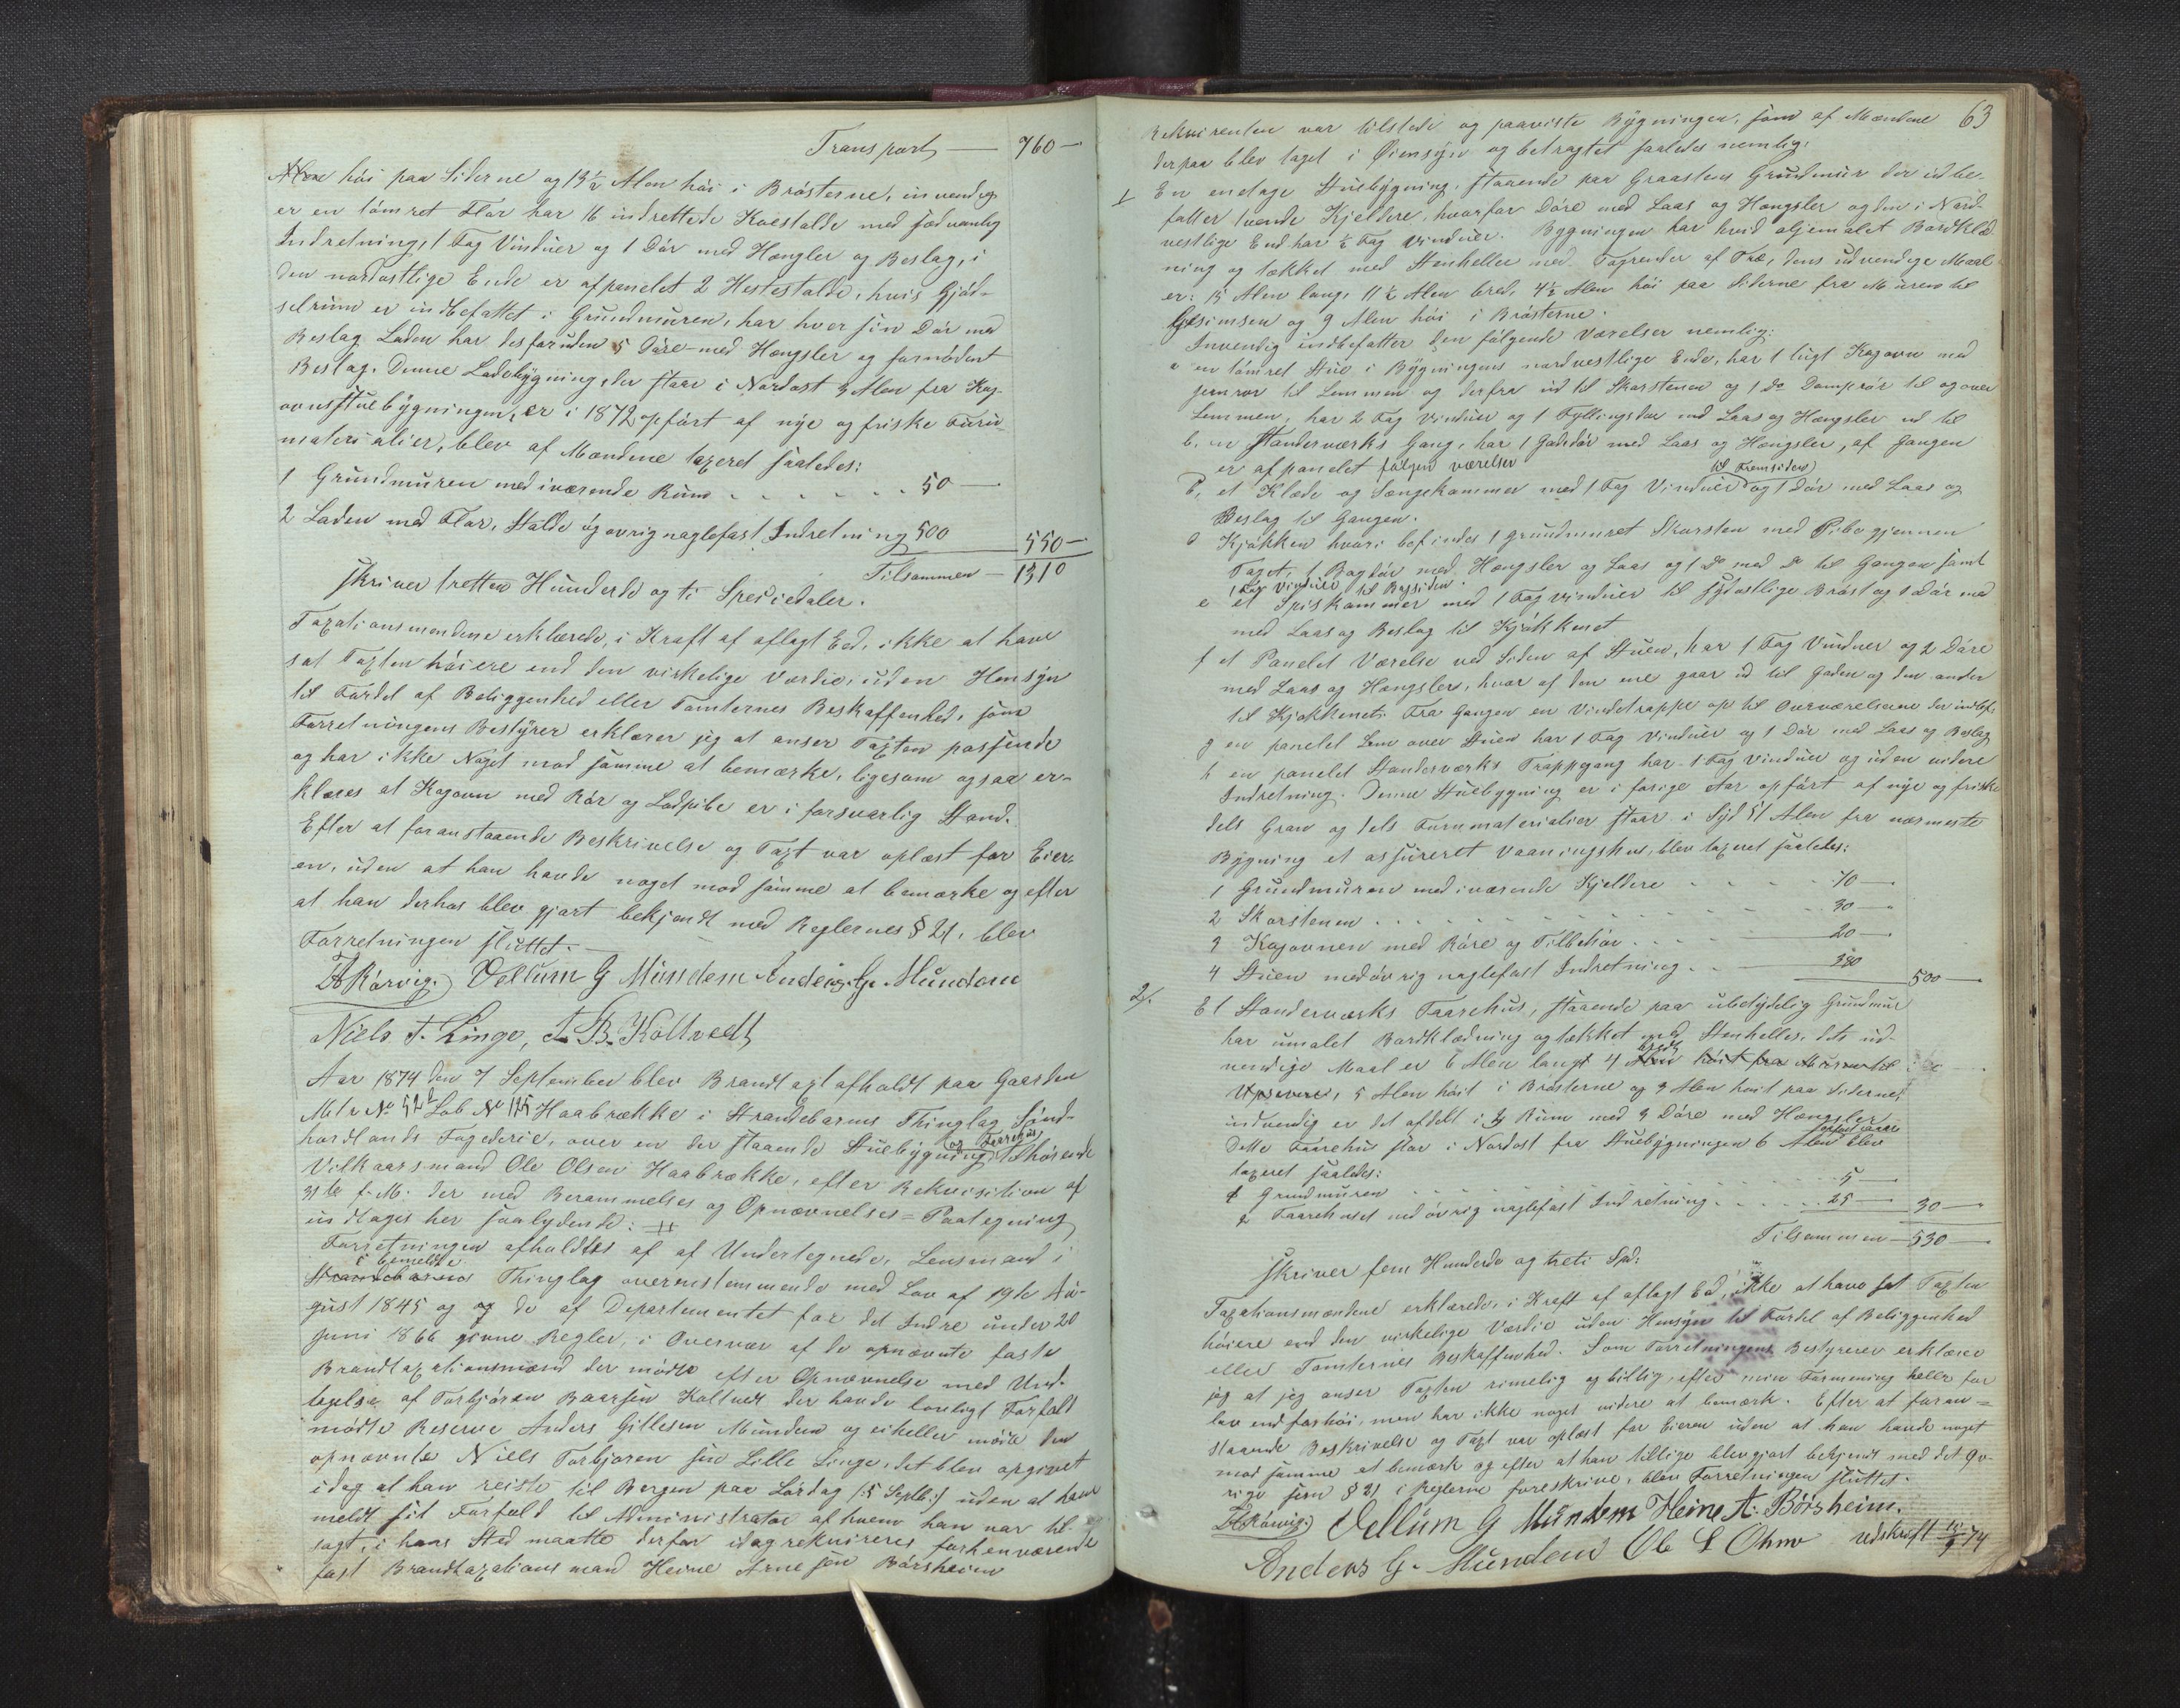 Transport — 760 —
Alen høi paa Siderne og 13½ Alen høi i Brøsterne, invendig
er en tømret Flor har 16 indrettede Koestalde med sædvanlig
Indretning, 1 Fag Vinduer og 1 Dør med Hængler og Beslag, i
den nordostlige Ende er afpanelet 2 Hestestalde, hvis Gjød-
selrum er indbefattet i Grundmuren, har hver sin Dør med
Beslag. Laden har desforuden 5 Døre med Hængsler og fornødent
Beslag. Denne Ladebygning, der staar i Nordost 9 Alen fra Kog-
ovnsstuebygningen, er i 1872 opført af nye og friske Furu-
materialier, blev af Mændene taxeret saaledes:
1 Grundmuren med iværende Rum . . . . . . . 50 —
2 Laden med Flor, Stalde og øvrig naglefast Indretning 500
550 —
Tilsammen — 1310
skriver tretten Hundrede og ti Speciedaler.
Taxationsmændene erklærede, i Kraft af aflagt Eed, ikke at have
sat Taxten høiere end den virkelige Værdie, uden Hensyn
til Fordel af Beliggenhed eller Tomternes Beskaffenhed, som
Forretningens Bestyrer erklærer jeg at anser Taxten passende
og har ikke Noget mod samme at bemærke, ligesom ogsaa er-
klæres at Kogovn med Rør og Ladpibe er i forsvarlig Stand.
Efter at foranstaaende Beskrivelse og Taxt var oplæst for Eier-
en, uden at han havde noget mod samme at bemærke og efter
at han derhos blev gjort bekjendt med Reglernes § 21, blev
Forretningen sluttet. —
Rørvig. Vellum G Mundem Anders G. Mundem
Niels T. Linge, T. B. Koltvedt
Aar 1874 den 7 September blev Brandtaxt afholdt paa Gaarden
Mtr No 52 Løb No 125 Haabrække i Strandebarms Thinglag Sønd-
hordlands Fogederie, over en der staaende Stuebygning og Faarehus, tilhørende
Vilkaarsmand Ole Olsen Haabrække, efter Rekvisition af
31te f. M. der med Berammelses og Opnævnelses-Paategning
indtages her saalydende: #
Forretningen afholdtes af af Undertegnede, Lensmand i
i bemeldte
Strandebarms Thinglag overenstemmende med Lov af 19de Au-
gust 1845 og og de af Departementet for det Indre under 20
Juni 1866 givne Regler, i Overvær af de opnævnte faste
Brandtaxationsmænd der mødte efter Opnævnelse med Und-
tagelse af Torbjøren Baarsen Koltvedt der havde lovligt Forfald
mødte Reserve Anders Gillesen Mundem og eiheller mødte den
opnævnte Niels Torbjøren sen Lille Linge, det blev opgivet
idag at han reiste til Bergen paa Lørdag /:5 Septb:/ uden at have
meldt sit Forfald til Administrator af hvem han var til-
sagt, i hans Sted maatte derfor idag rekvireres forhenværende
fast Brandtaxationsmand Heine Arne sen Børsheim
63
Rekvirenten var tilstede og paaviste Bygningen, som af Mændene
derpaa blev taget i Øiensyn og betragtet saaledes nemlig:
1 En enetage Stuebygning, staaende paa Graastens Grundmur der indbe-
fatter tvende Kjeldere, hvorfor Døre med Laas og Hængsler og den i Nord-
vestlige End har ½ Fag Vinduer. Bygningen har hvid oljemalet Bordklæd
ning og tækket med Stenheller med Tagrender af Træ, dens udvendige Maal
er: 15 Alen lang, 11½ Alen bred, 4½ Alen høi paa Siderne fra Muren til
Gesimsen og 9 Alen høi i Brøsterne.
Invendig indbefatter den følgende Værelser nemlig:
a en tømret Stue i Bygningens nordvestlige Ende, har 1 lugt Kogovn med
jernrør til Lemmen og derfra ud til Skorstenen og 1 do Damprør til og over
Lemmen, har 2 Fag Vinduer og 1 Fyllingsdør med Laas og Hængsler ud til
b. en Standerværks Gang, har 1 Gadedør med Laas og Hængsler, af Gangen
er afpanelet følgen værelser
til Fremsiden
c, et Klæde og Sængekammer med 1 Fag Vinduer og 1 Dør med Laas og
Beslag til Gangen.
d Kjøkken hvori befindes 1 grundmuret Skorsten med Pibe gjennem
Taget, 1 Bagdør med Hængsler og Laas og 1 do med do til Gangen samt
1 Fag Vinduer til Bagsiden.
e et Spiskammer med 1 Fag vinduer til sydostlige Brøst og 1 Dør med
med Laas og Beslag til Kjøkkenet
f et Panelet Værelse ved Siden af Stuen, har 1 Fag Vinduer og 2 Døre
med Laas og Hængsler, hvor af den ene gaar ud til Gaden og den anden
til Kjøkkenet. Fra Gangen en Vindetrappe op til Overværelserne der indbef.
g en panelet Lem over Stuen har 1 Fag Vinduer og 1 Dør med Laas og Beslag
h en panelet Standerværks Trappegang har 1 Fag Vinduer og uden videre
Indretning. Denne Stuebygning er i forige Aar opført af nye og friske
dels Gran og dels Furumaterialier staar i Syd 51 Alen fra nærmeste
Bygning et assureret Vaaningshus, blev taxeret saaledes:
1 Grundmuren med iværende Kjeldere . . . . . 70 —
2 Skorstenen . . . . . . . . . . 30 —
3 Kogovnen med Røre og Tilbehør . . . . 20 —
4 Stuen med øvrig naglefast Indretning . . — 380
500 —
2/. Et Standerværks Faarehus, staaende paa ubetydelig Grundmur
har umalet Bordklædning og tækket med Stenheller. dets ud-
vendige Maal er 6 Alen langt 4 Alen bredt høit fra Muren til
Upserne, 5 Alen høit i Brøsterne og 3 Alen høit paa Siderne,
indvendig er det afdelt i 3 Rum med 3 Døre med Hængsler.
Dette Faarehus staar i Nordost fra Stuebygningen 6 Alen blev
taxeret saaledes:
1 Grundmuren . . . . . . . . 5 —
2 Faarehuset med øvrig naglefast Indretning . . . . . 25 — 30 —
Tilsammen — 530 —
skriver fem Hundrede og treti Spd:
Taxationsmændene erklærede, i Kraft af aflagt Ed, ikke at have sat Taxten
høiere end den virkelige Værdie uden Hensyn til Fordel af Beliggenhed
eller Tomternes Beskaffenhed. Som Forretningens Bestyrer erklærer
jeg at jeg anser Taxten rimelig og billig, efter min Formening heller for
lav end forhøi, men har ikke noget videre at bemærk. Efter at foran=
staaende Beskrivelse og Taxt var oplæst for Eieren uden at han havde noget
mod samme at bemærk og efter at han tillige blev gjort bekjendt med det Øv-
rige som § 21 i Reglerne foreskrive, blev Forretningen sluttet.
Rørvig. Vellum G Mundem Heine A: Børsheim.
Anders G. Mundem